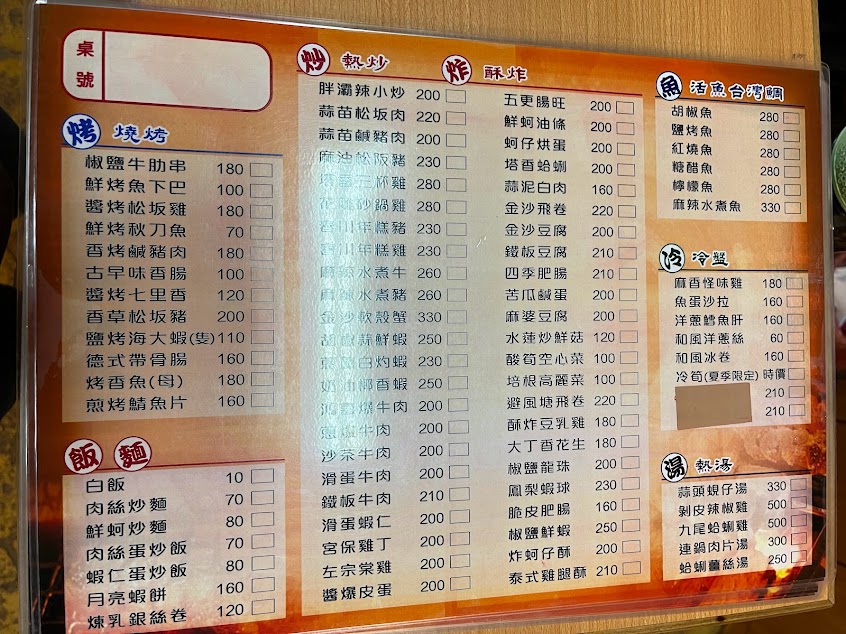 桌號
烤 燒烤
椒鹽牛肋串 180
鮮烤魚下巴 100
醬烤松坂雞 180
鮮烤秋刀魚 70
香烤鹹豬肉 180
古早味香腸 100
醬烤七里香 120
香草松坂豬 200
鹽烤海大蝦(隻) 110
德式帶骨腸 160
烤香魚(母) 180
煎烤鯖魚片 160
飯 麵
白飯 10
肉絲炒麵 70
鮮蚵炒麵 80
肉絲蛋炒飯 70
蝦仁蛋炒飯 80
月亮蝦餅 160
煉乳銀絲卷 120
炒 熱炒
胖灞辣小炒 200
蒜苗松坂肉 220
蒜苗鹹豬肉 200
麻油松阪豬 230
塔香三杯雞 280
花雕砂鍋雞 280
香川年糕豬 230
香川年糕雞 230
麻辣水煮牛 260
麻辣水煮豬 260
金沙軟殼蟹 330
胡椒蒜鮮蝦 250
白灼蝦 230
奶油椰香蝦 250
爆牛肉 200
蔥爆牛肉 200
沙茶牛肉 200
滑蛋牛肉 200
鐵板牛肉 210
滑蛋蝦仁 200
宮保雞丁 200
左宗棠雞 200
醬爆皮蛋 200
炸 酥炸
五更腸旺 200
鮮蚵油條 200
蚵仔烘蛋 200
塔香蛤蜊 200
蒜泥白肉 160
金沙飛卷 220
金沙豆腐 200
鐵板豆腐 210
四季肥腸 210
苦瓜鹹蛋 200
麻婆豆腐 200
水蓮炒鮮菇 120
酸筍空心菜 100
培根高麗菜 100
避風塘飛卷 220
酥炸豆乳雞 180
大丁香花生 180
椒鹽龍珠 200
鳳梨蝦球 230
脆皮肥腸 160
椒鹽鮮蝦 250
炸蚵仔酥 200
泰式雞腿酥 210
魚 活魚台灣鯛
胡椒魚 280
鹽烤魚 280
紅燒魚 280
糖醋魚 280
檸檬魚 280
麻辣水煮魚 330
冷 冷盤
麻香怪味雞 180
魚蛋沙拉 160
洋蔥鱈魚肝 160
和風洋蔥絲 60
和風冰卷 160
冷筍(夏季限定) 時價
210
210
湯 熱湯
蒜頭蜆仔湯 330
剝皮辣椒雞 500
九尾蛤蜊雞 500
連鍋肉片湯 300
蛤蜊薑絲湯 250